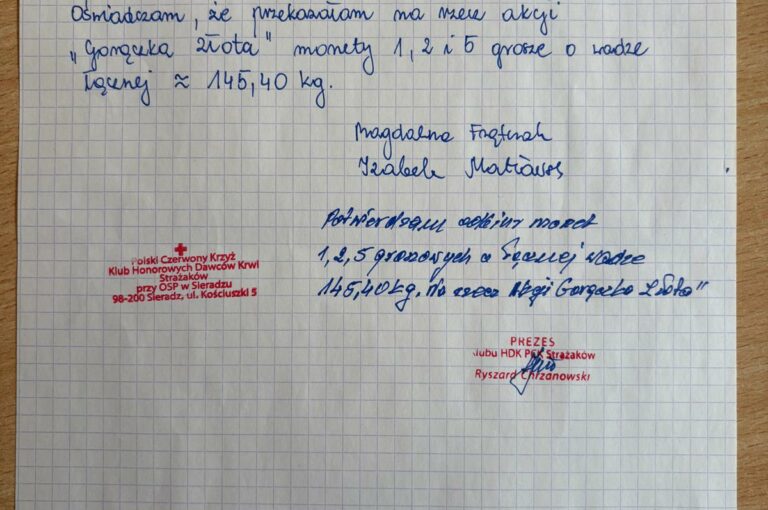 Oświadczam, że przekazałam na rzecz akcji
„Gorączka złota" monety 1, 2 i 5 grosze o wadze
łącznej ≈ 145,40 kg.
Magdalena
Izabela
Potwierdzam odbiór monet
1,2,5 groszowych o łącznej wadze
145,40 kg. na rzecz Akcji Gorączka Złota"
Polski Czerwony Krzyż
Klub Honorowych Dawców Krwi
Strażaków
przy OSP w Sieradzu
98-200 Sieradz, ul. Kościuszki 5
PREZES
Klubu HDK PCK Strażaków
Ryszard Chrzanowski